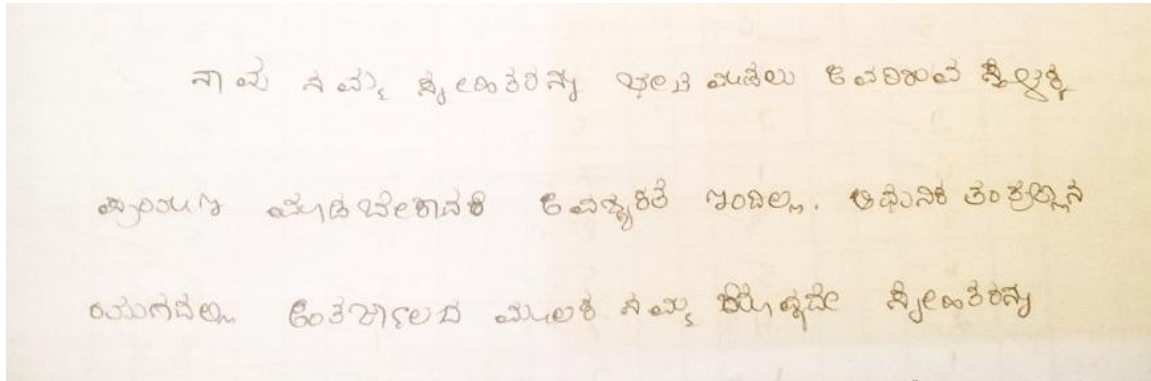 ನಾವು ನಮ್ಮ ಸ್ನೇಹಿತರನ್ನು ಭೇಟಿ ಮಾಡಲು ಅವರಿರುವ ಸ್ಥಳಕ್ಕೆ
ಪ್ರಯಾಣ ಮಾಡಬೇಕಾದ ಅವಶ್ಯಕತೆ ಇಂದಿಲ್ಲ. ಆಧುನಿಕ ತಂತ್ರಜ್ಞಾನ
ಯುಗದಲ್ಲಿ ಅಂತರ್ಜಾಲದ ಮೂಲಕ ನಮ್ಮ ಸ್ನೇಹಿತರನ್ನು